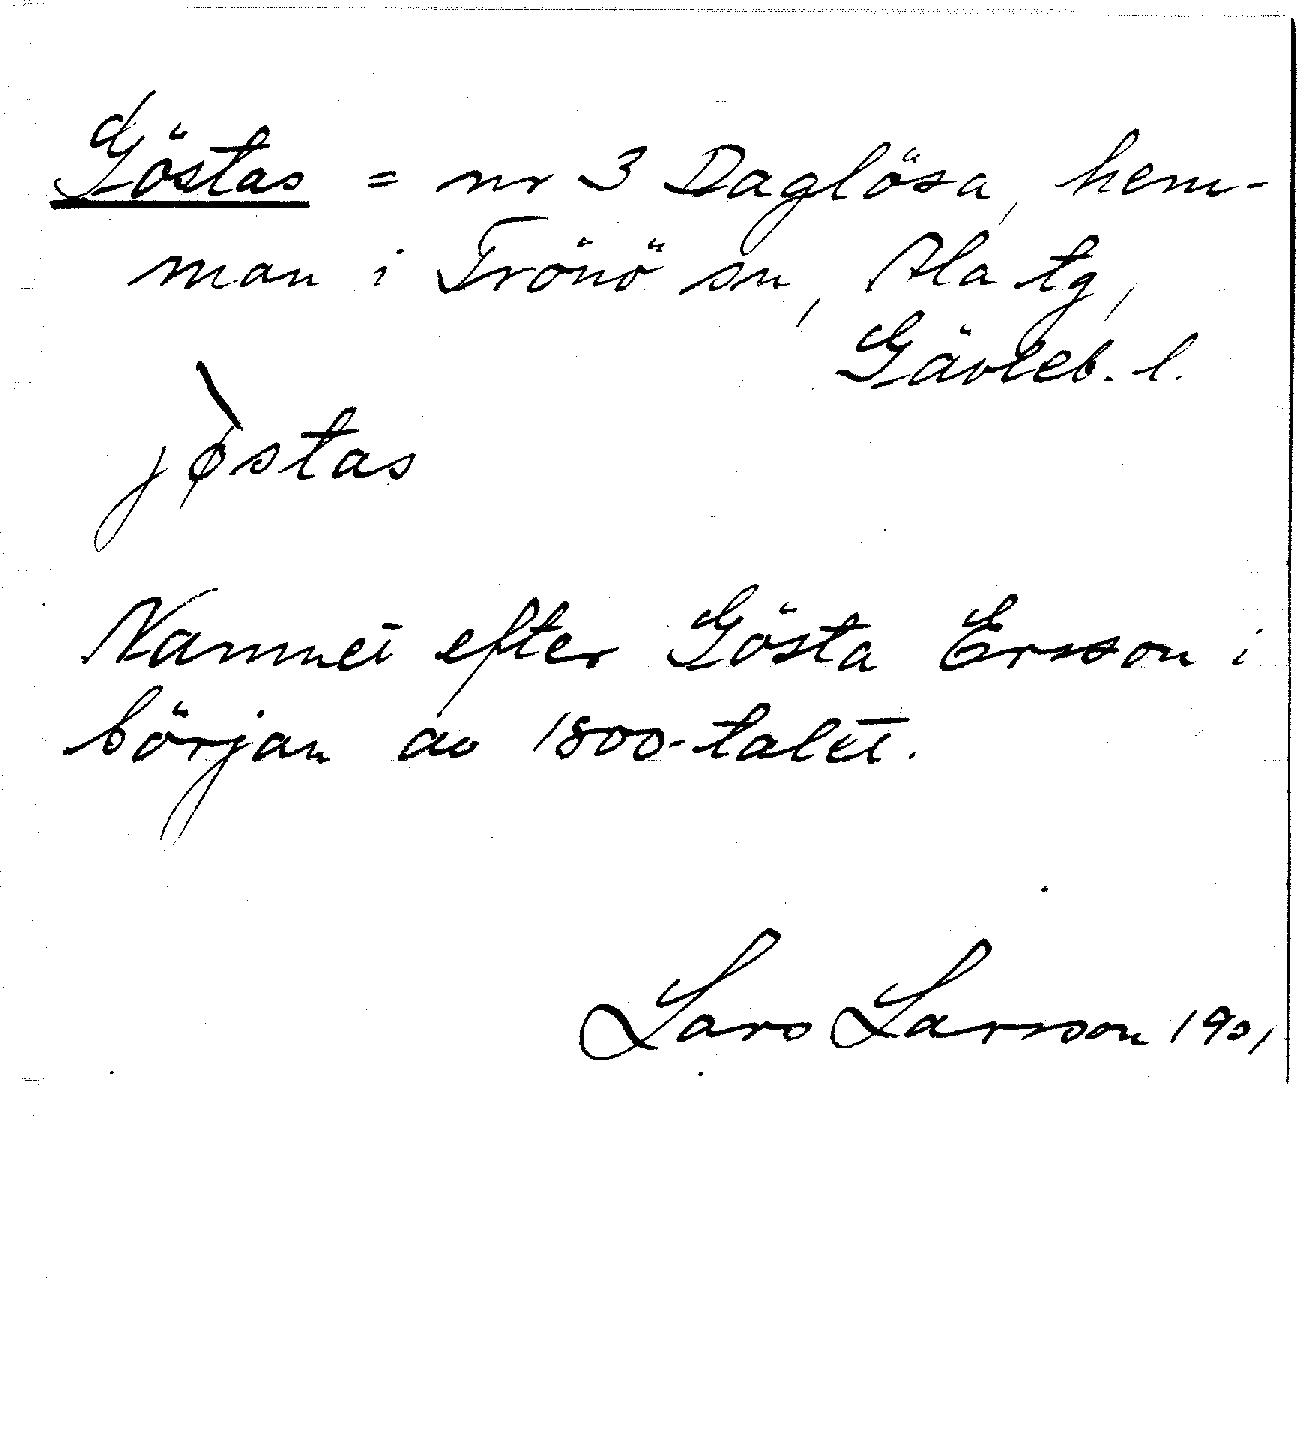 Göstas = nr 3 Daglösa, hem-
man i Trönö sn, Ala tg,
Gävleb. l.
jø̀stas
Namnet efter Gösta Ersson i
början av 1800-talet.
Lars Larsson 1901